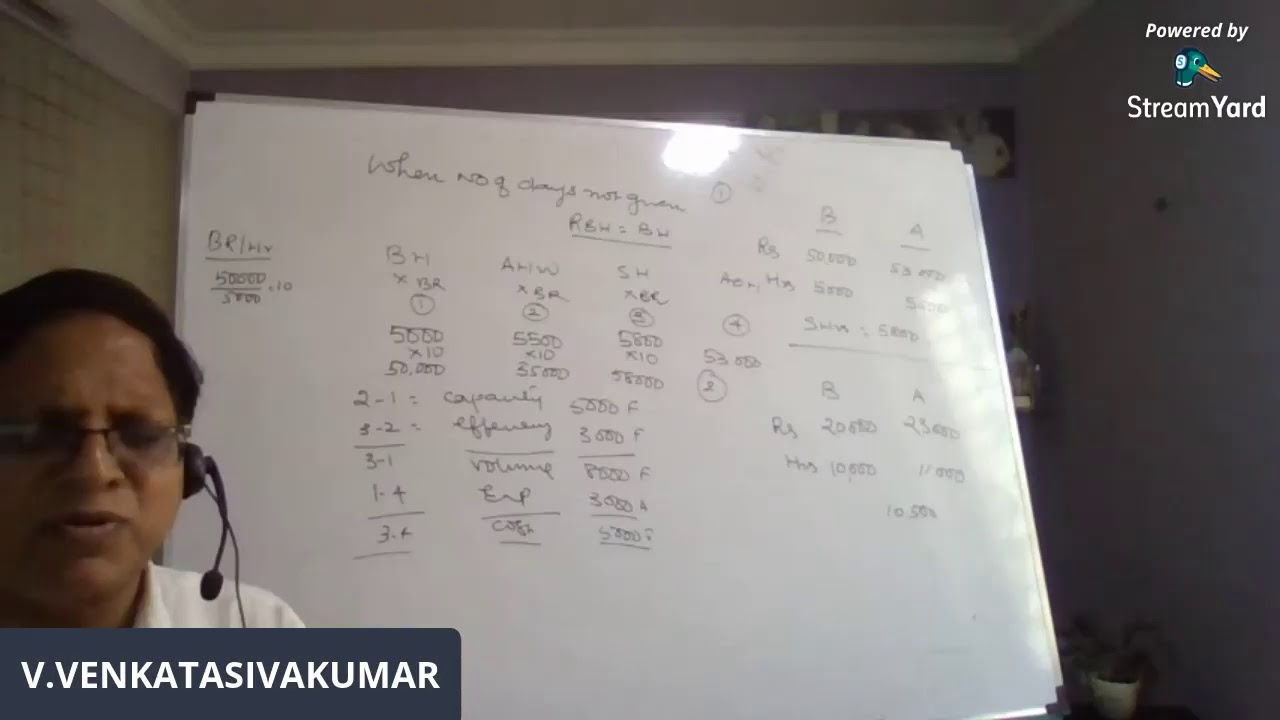 Powered by
StreamYard
When No of days not given
RBH = BH
①
B A
Rs 50,000 53000
Hrs 5000 5500
SHrs = 5800
BR/Hr
50000
5000 = 10
BH AHW SH
× BR × BR × BR
① ② ③ ④
5000 5500 5800
×10 ×10 ×10 53000
50,000 55000 58000
2-1 = capacity 5000 F
3-2 = effeciency 3000 F
3-1 volume 8000 F
1-4 Exp 3000 A
3-4 cost 5000 F
②
B A
Rs 20000 23000
Hrs 10,000 11000
10500
V.VENKATASIVAKUMAR